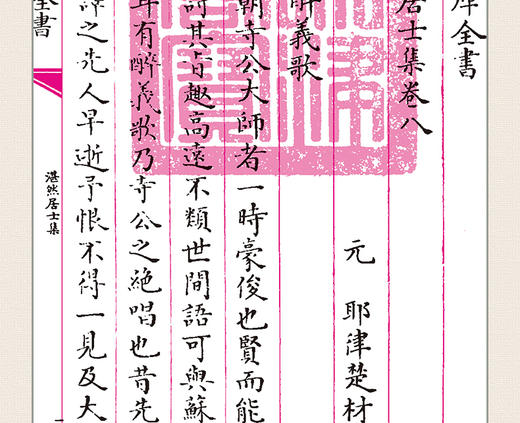 庫全書
居士集卷八
元 耶律楚材
醉義歌
朝寺公大師者一時豪俊也賢而能
詩其旨趣高遠不類世間語可與蘇
耳有醉義歌乃寺公之絶唱也昔先
譯之先人早逝予恨不得一見及大
全書
湛然居士集